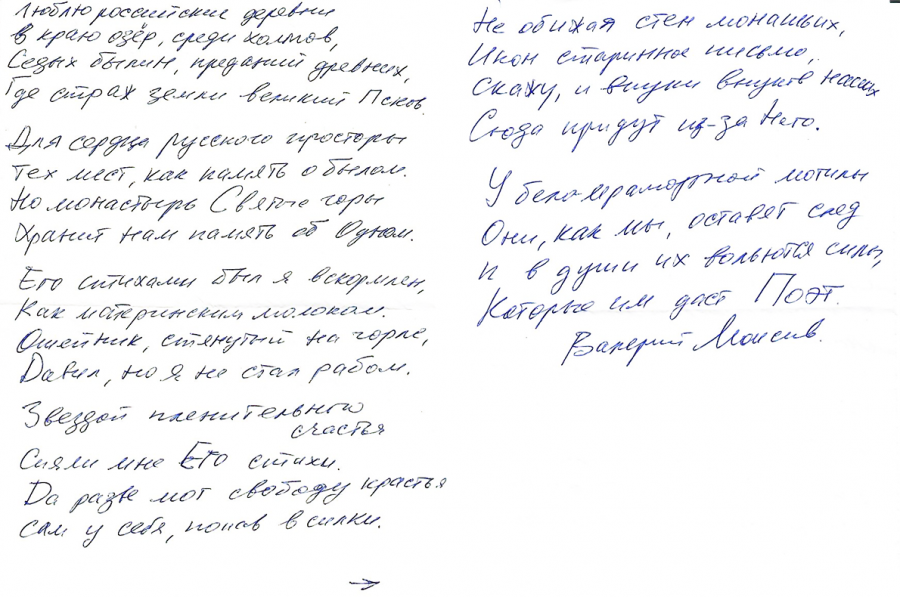 Люблю российские деревни
в краю озёр, среди холмов,
Седых былин, преданий древних,
Где страж земли великий Псков.
Для сердца русского просторы
тех мест, как память о былом.
Но монастырь Святые горы
Хранит нам память об Одном.
Его стихами был я вскормлен,
Как материнским молоком.
Ошейник, стянутый на горле,
Давил, но я не стал рабом.
Звездой пленительного
счастья
Сияли мне Его стихи.
Да разве мог свободу красть я
сам у себя, попав в силки.
→
Не обижая стен монашьих,
Икон старинное письмо,
Скажу, и внуки внуков наших
Сюда придут из-за Него.
У беломраморной могилы
Они, как мы, оставят след
И в души их вольются силы,
Которые им даст Поэт.
Валерий